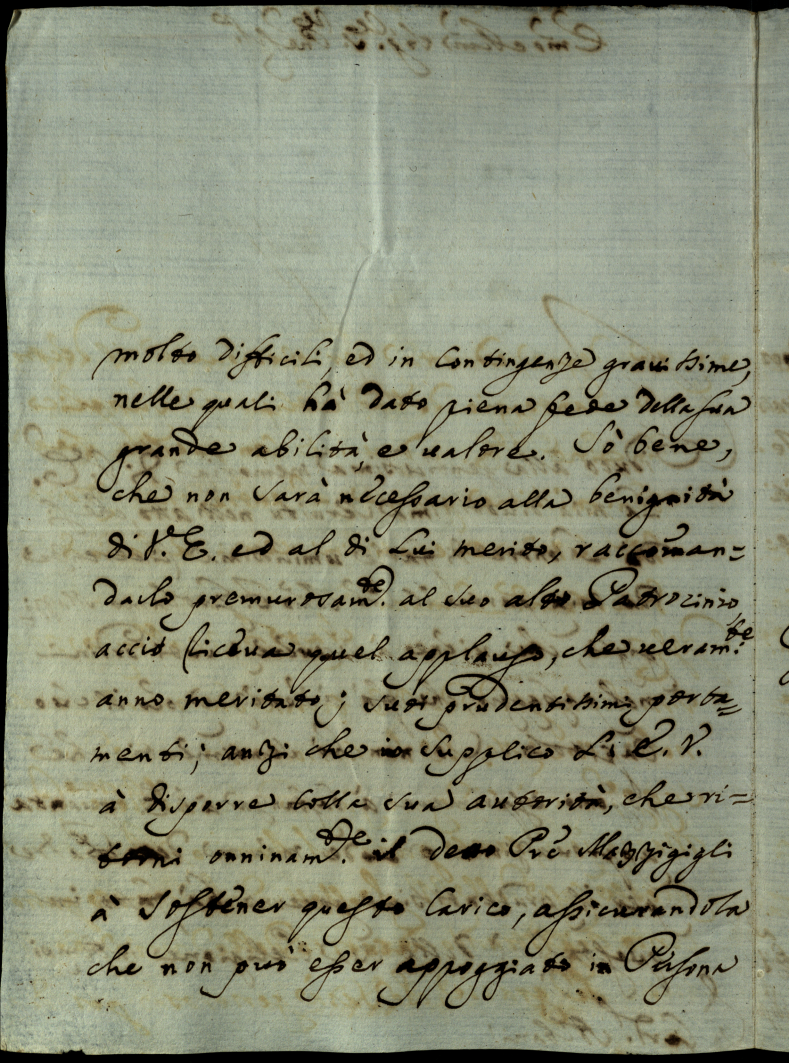 molto difficili, ed in contingenze grauissime,
nelle quali hà dato piena fede della sua
grande abilità, e ualore. Sò bene,
che non sarà necessario alla benignità
di V.E. ed al di Lui merito, raccoman=
darlo premurosam.te al suo alto Patrocinio,
acciò riceua quel applauso, che ueram.te
anno meritato i suoi prudentissimi porta=
menti; anzi che io supplico L'E.V.
à disporre colla sua autorità, che ri=
torni onninam.te il detto Prè Mazzigigli
à sostener questo carico, assicurandola
che non può esser appoggiato in Persona